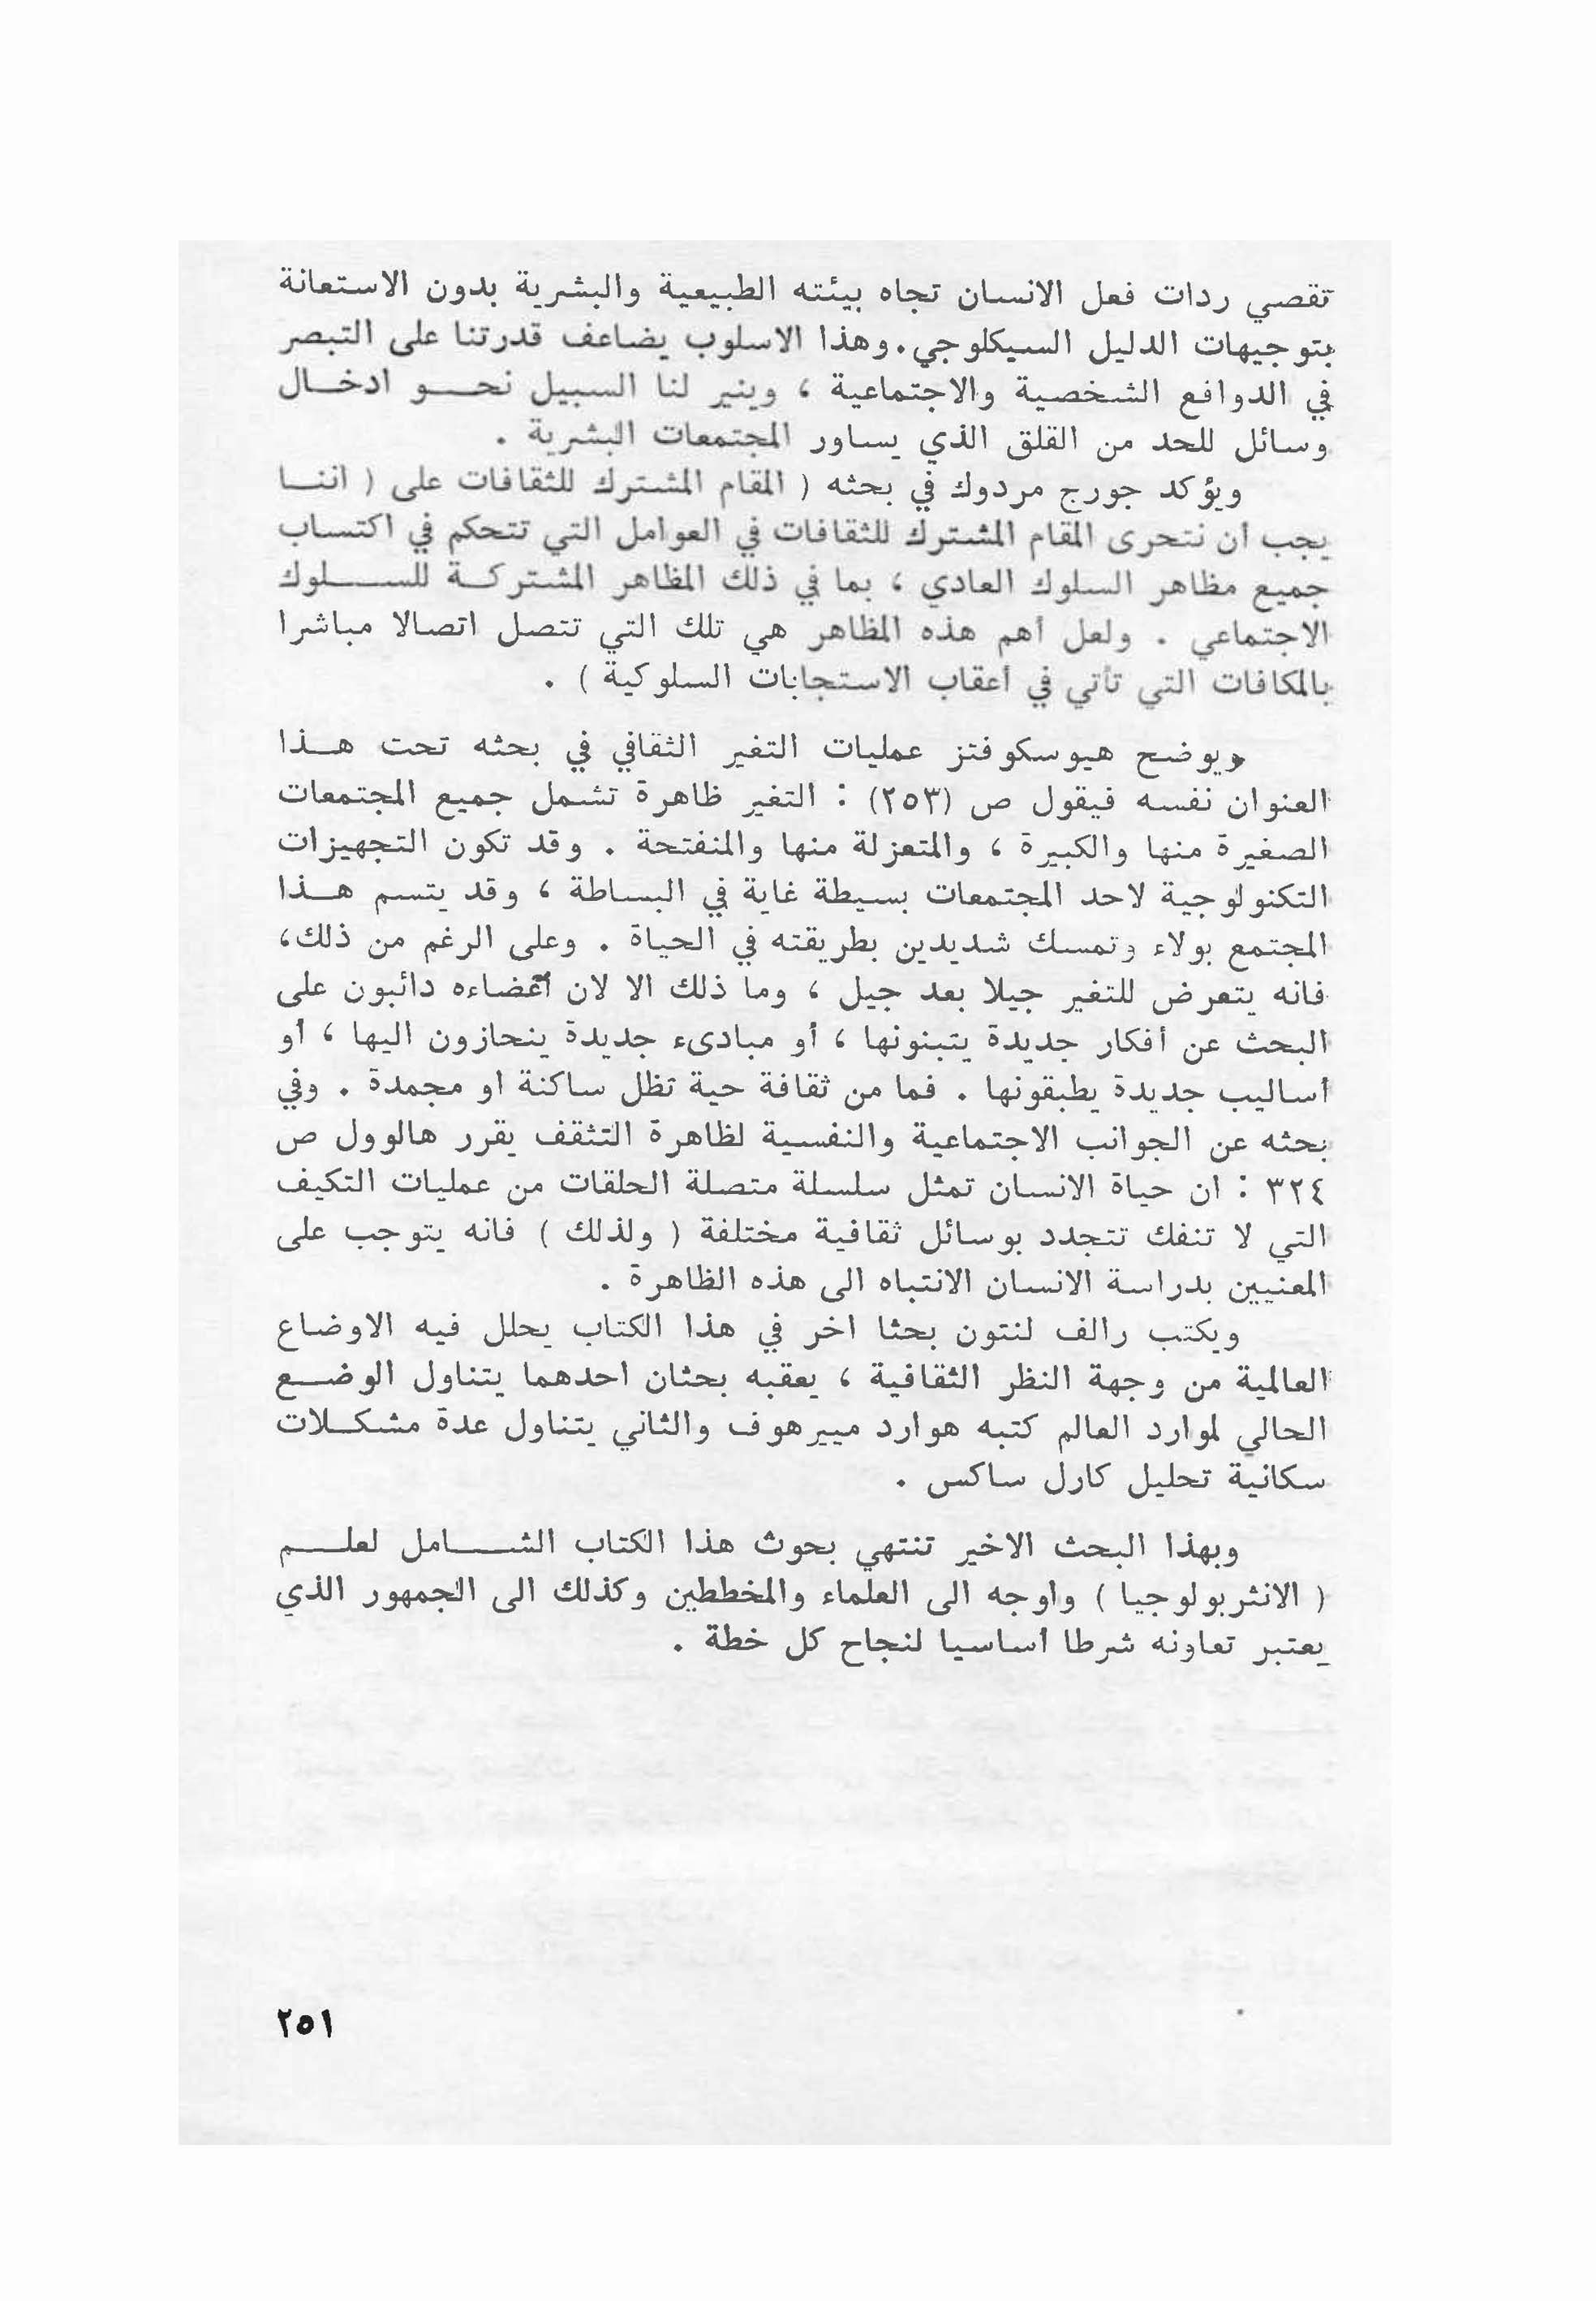 تقصي ردات فعل الانسان تجاه بيئته الطبيعية والبشرية بدون الاستعانة
بتوجيهات الدليل السيكلوجي.وهذا الاسلوب يضاعف قدرتنا على التبصر
في الدوافع الشخصية والاجتماعية ، وينير لنا السبيل نحو ادخال
وسائل للحد من القلق الذي يساور المجتمعات البشرية .
ويؤكد جورج مردوك في بحثه ( المقام المشترك للثقافات على ( اننا
يجب ان نتحرى المقام المشترك للثقافات في العوامل التي تتحكم في اكتساب
جميع مظاهر السلوك العادي ، بما في ذلك المظاهر المشتركة للسلوك
الاجتماعي . ولعل أهم هذه المظاهر هي تلك التي تتصل اتصالا مباشرا
بالمكافات التي تأتي في أعقاب الاستجابات السلوكية ) .
ويوضح هيوسكوفتز عمليات التغير الثقافي في بحثه تحت هذا
العنوان نفسه فيقول ص (٢٥٣) : التغير ظاهرة تشمل جميع المجتمعات
الصغيرة منها والكبيرة ، والمتعزلة منها والمنفتحة . وقد تكون التجهيزات
التكنولوجية لاحد المجتمعات بسيطة غاية في البساطة ، وقد يتسم هذا
المجتمع بولاء وتمسك شديدين بطريقته في الحياة . وعلى الرغم من ذلك،
فانه يتعرض للتغير جيلا بعد جيل ، وما ذلك الا لان أعضاءه دائبون على
البحث عن أفكار جديدة يتبنونها ، أو مبادىء جديدة ينحازون اليها ، أو
أساليب جديدة يطبقونها . فما من ثقافة حية تظل ساكنة او مجمدة . وفي
بحثه عن الجوانب الاجتماعية والنفسية لظاهرة التثقف يقرر هالوول ص
٣٢٤ : ان حياة الانسان تمثل سلسلة متصلة الحلقات من عمليات التكيف
التي لا تنفك تتجدد بوسائل ثقافية مختلفة ( ولذلك ) فانه يتوجب على
المعنيين بدراسة الانسان الانتباه الى هذه الظاهرة .
ويكتب رالف لنتون بحثا اخر في هذا الكتاب يحلل فيه الاوضاع
العالمية من وجهة النظر الثقافية ، يعقبه بحثان احدهما يتناول الوضع
الحالي لموارد العالم كتبه هوارد ميرهوف والثاني يتناول عدة مشكلات
سكانية تحليل كارل ساكس .
وبهذا البحث الاخير تنتهي بحوث هذا الكتاب الشامل لعلم
( الانثربولوجيا ) واوجه الى العلماء والمخططين وكذلك الى الجمهور الذي
يعتبر تعاونه شرطا أساسيا لنجاح كل خطة .
٢٥١